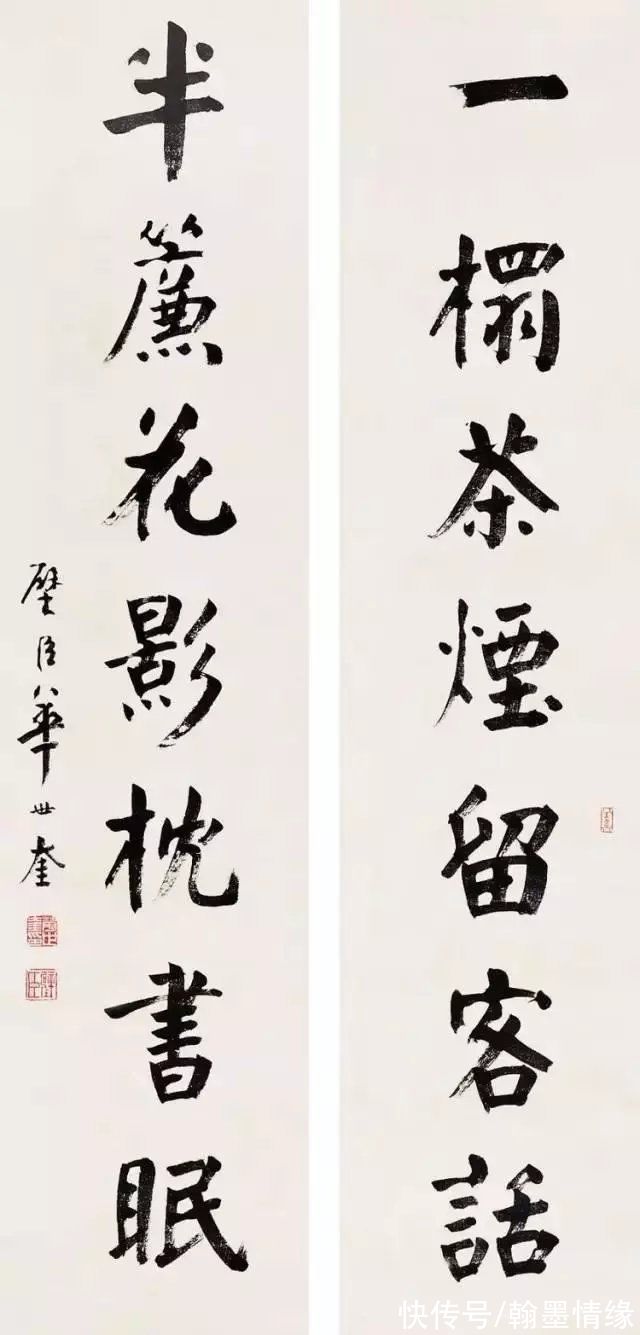 一榻茶煙留客話
半簾花影枕書眠
璧臣華世奎
快传号/翰墨情缘